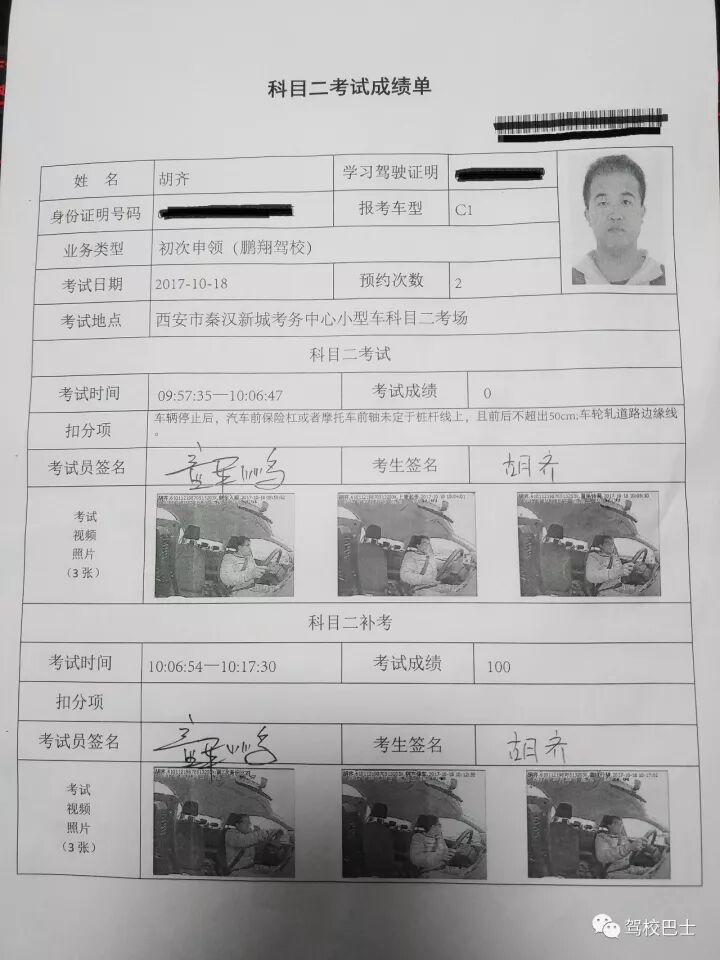 科目二考试成绩单
姓 名 胡齐 学习驾驶证明
身份证明号码 报考车型 C1
业务类型 初次申领（鹏翔驾校）
考试日期 2017-10-18 预约次数 2
考试地点 西安市秦汉新城考务中心小型车科目二考场
科目二考试
考试时间 09:57:35—10:06:47 考试成绩 0
扣分项 车辆停止后，汽车前保险杠或者摩托车前轴未定于桩杆线上，且前后不超出50cm;车轮轧道路边缘线
。
考试员签名 考生签名 胡齐
考试
视频
照片
（3 张）
科目二补考
考试时间 10:06:54—10:17:30 考试成绩 100
扣分项
考试员签名 考生签名 胡齐
考试
视频
照片
（3 张）
驾校巴士